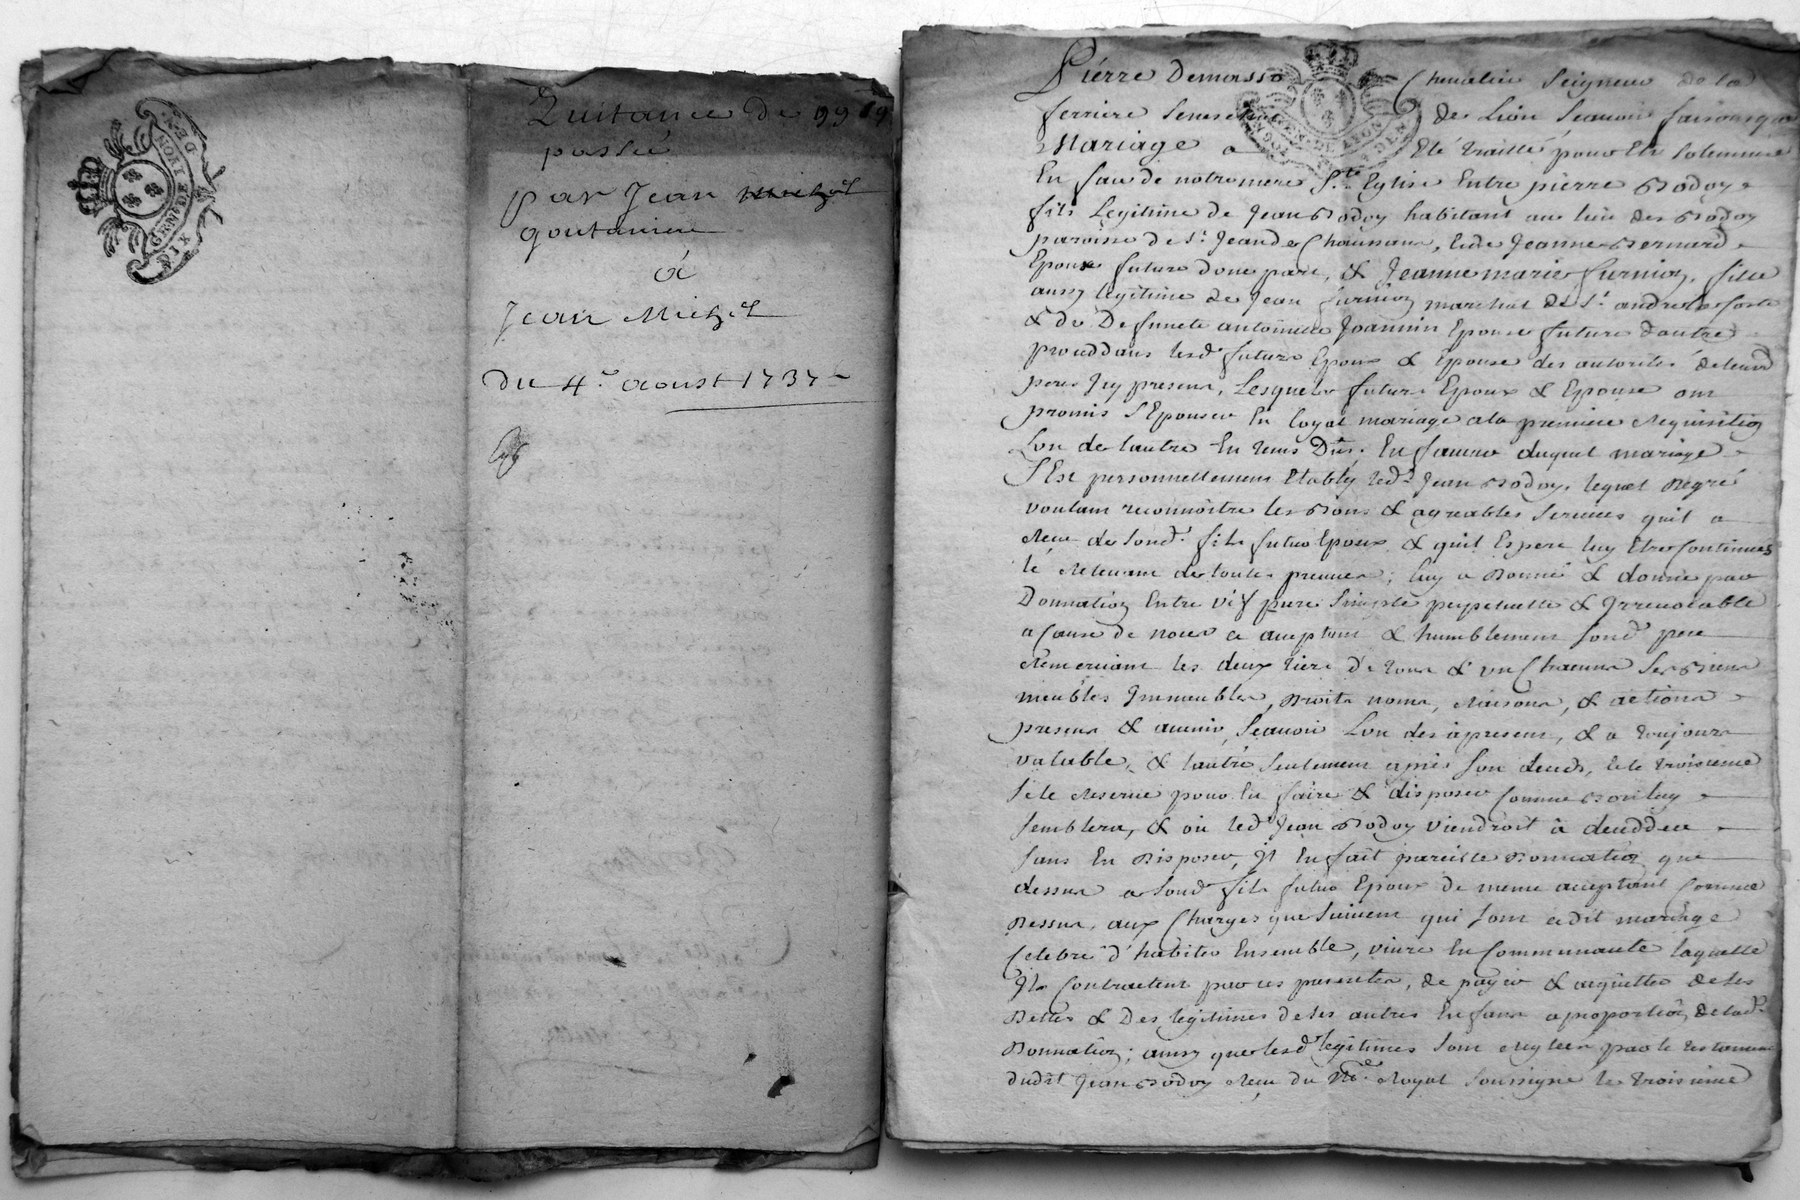 Quitance de 99
passé
par Jean Michel
goutanier
à
Jean Michel
du 4e aoust 1737
GNN DE LION
SIX DEN
Pierre Demasso Chevalier Seigneur de la
ferriere Senechal de Lion Scavoir faisons que
Mariage a Eté traitté pour Etre Solemnisé
En face de notre mere Ste Eglise Entre pierre Bodoy
fils Legitime de Jean Bodoy habitant au lieu des Bodoy
paroisse de St Jean de Chaussan, & de Jeanne Bernard
Epoux futur d'une part, & Jeanne marie furnion, fille
aussy legitime de Jean furnion marchat de St andré
& de Defuncte antoinette Joannin Epouse future d'autre
proceddans lesd futurs Epoux & Epouse des autorités de leurd
peres Icy presens, Lesquels futurs Epoux & Epouse ont
promis S'Epouser En loyal mariage a la premiere Requisition
Lun de lautre En tems Du, En faveur duquel mariage
S'Est personnellement Etably led Jean Bodoy, lequel De gré
voulant reconnoitre les Bons & agreables Services quil a
Receu de Sond fils futur Epoux & quil Espere luy Etre Continués
le Relevant de toutes preuves, luy a Donné & donne par
Donnation Entre vif pure Simple perpetuelle & Irrevocable
a Cause de noces ce acceptant & humblement Sond pere
Remerciant les deux tiers de tous & un Chacuns Ses Biens
meubles Immeubles, Droits noms, Raisons, & actions
presens & avenir, Scavoir Lun des àpresent, & a toujours
valable, & lautre Seulement après Son deceds, & le troisieme
Se le Reserve pour En faire & disposer Comme Bon luy
Semblera, & où led Jean Bodoy viendroit à decedder
Sans En Disposer, Il En fait pareille Donnation que
dessus a Sond fils futur Epoux de meme acceptant Comme
Dessus, aux Charges que Suivent qui Sont cedit mariage
Celebré d'habiter Ensemble, vivre En Communauté laquelle
Ils Contractent par ces presentes, de payer & acquitter de Ses
Dettes & Des legitimes de Ses autres Enfans a proportion de lad
Donnation; aussy que lesd legitimes Sont Reglées par le testament
dudit Jean Bodoy Receu du Nre Royal Soussigné le troisieme